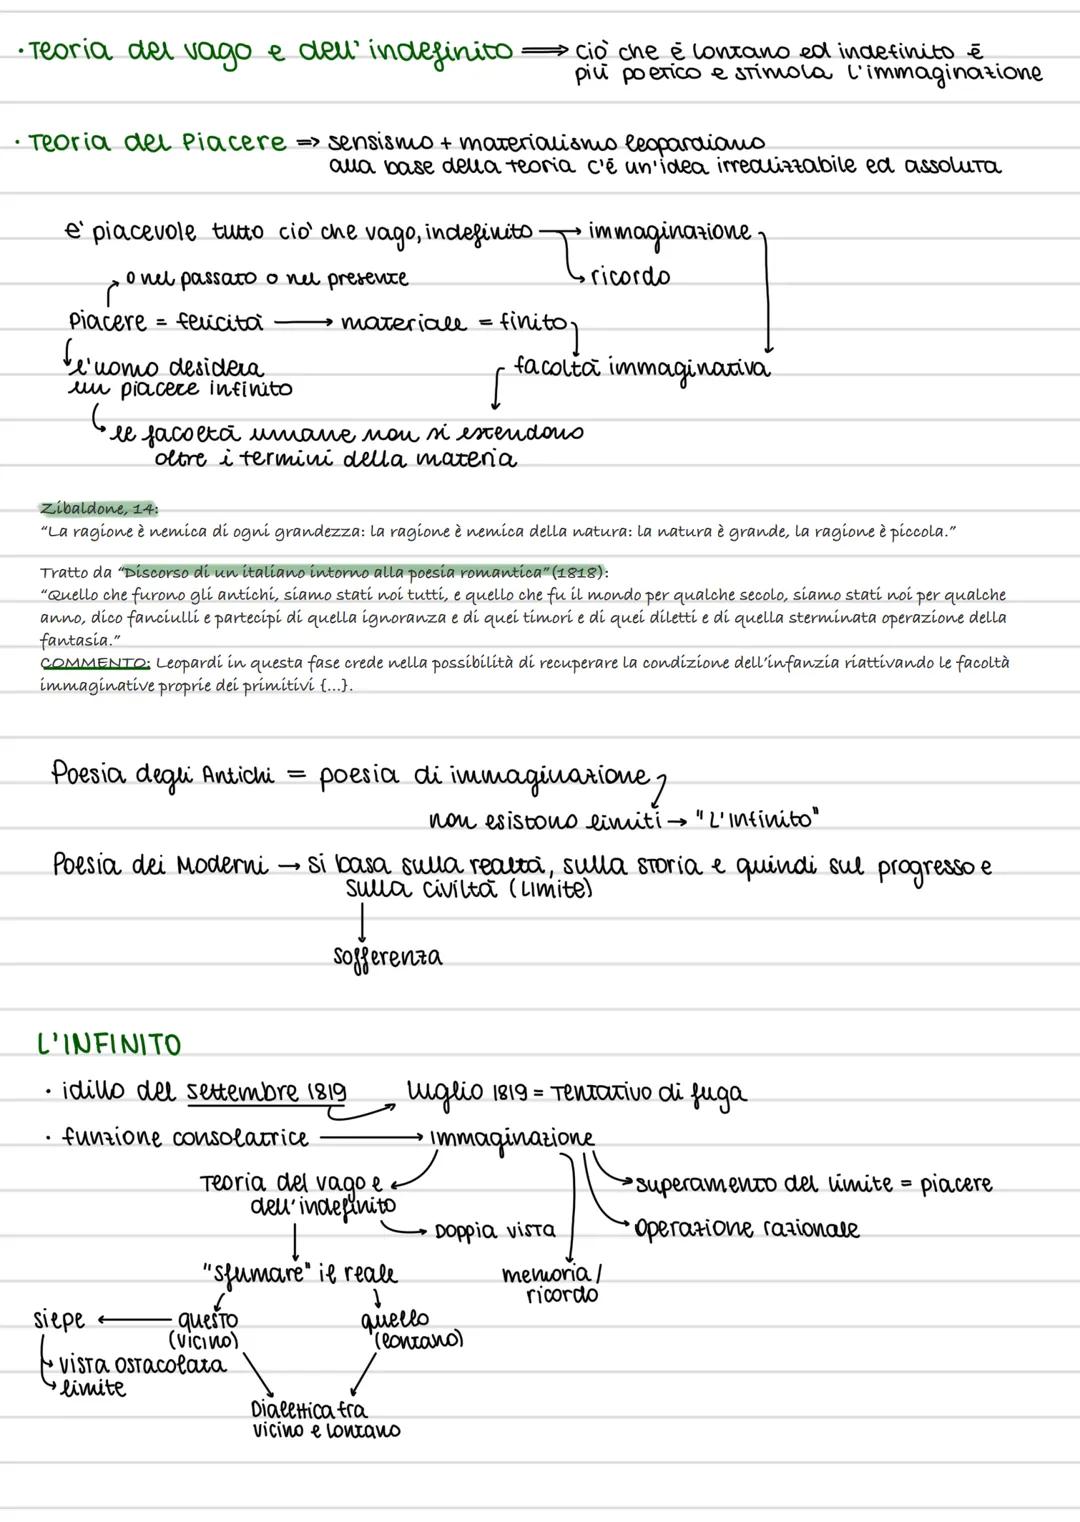 · Teoria del vago e dell'indefinito ⟹ ciò che è lontano ed indefinito è
più poetico e stimola l'immaginazione
· Teoria del Piacere => sensismo + materialismo leopardiano
alla base della teoria c'è un'idea irrealizzabile ed assoluta
e' piacevole tutto ciò che vago, indefinito → immaginazione
→ ricordo
o nel passato o nel presente
Piacere = felicità → materiale = finito
l'uomo desidera
un piacere infinito
facoltà immaginativa
le facoltà umane non si estendono
oltre i termini della materia
Zibaldone, 14:
“La ragione è nemica di ogni grandezza: la ragione è nemica della natura: la natura è grande, la ragione è piccola.”
Tratto da “Discorso di un italiano intorno alla poesia romantica”(1818):
“Quello che furono gli antichi, siamo stati noi tutti, e quello che fu il mondo per qualche secolo, siamo stati noi per qualche
anno, dico fanciulli e partecipi di quella ignoranza e di quei timori e di quei diletti e di quella sterminata operazione della
fantasia.”
COMMENTO: Leopardi in questa fase crede nella possibilità di recuperare la condizione dell'infanzia riattivando le facoltà
immaginative proprie dei primitivi {...}.
Poesia degli Antichi = poesia di immaginazione
non esistono limiti → "L'Infinito"
Poesia dei Moderni → si basa sulla realtà, sulla storia e quindi sul progresso e
sulla civiltà (Limite)
sofferenza
L'INFINITO
· idillo del settembre 1819 luglio 1819 = Tentativo di fuga
· funzione consolatrice → immaginazione
Teoria del vago e
dell'indefinito
superamento del limite = piacere
Doppia vista
operazione razionale
"sfumare" il reale
memoria/
ricordo
siepe ← questo
(vicino)
quello
(lontano)
vista ostacolata
limite
Dialettica tra
vicino e lontano